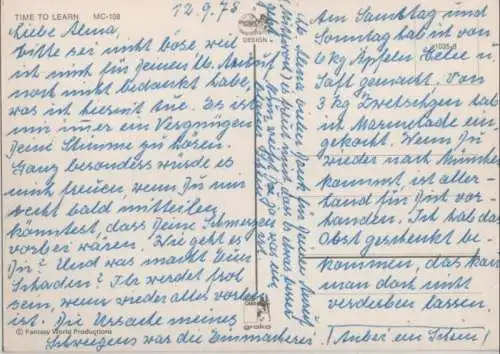 TIME TO LEARN MC-108
12.9.78
DESIGN
Liebe Alma,
bitte sei nicht böse, weil
ich mich für Deinen lb. Anruf
noch nicht bedankt habe,
was ich hiermit tue. Es ist
mir immer ein Vergnügen
Deine Stimme zu hören.
Ganz besonders würde es
mich freuen, wenn Du mir
recht bald mitteilen
könntest, dass Deine Schmerzen
vorbei wären. Wie geht es
Dir? Und was macht Dein
Schaden? Ihr werdet froh
sein, wenn wieder alles vorbei
ist. Die Ursache meines
Schweigens war die Einmacherei.
© Fantasy World Productions
grako
Am Samstag und
Sonntag hab ich von
6 kg Äpfeln Gelee u.
Saft gemacht. Von
3 kg Zwetschgen hab
ich Marmelade ein-
gekocht. Wenn Du
wieder nach München
kommst, ist aller-
hand für Dich vor-
handen. Ich hab das
Obst geschenkt be-
kommen, das kann
man doch nicht
verderben lassen.
! Anbei ein Schein!
Lb. Alma vielen Dank für Deinen Anruf
es freut mich, dass es etwas besser
Nun weißt Du ja was ein
ist.